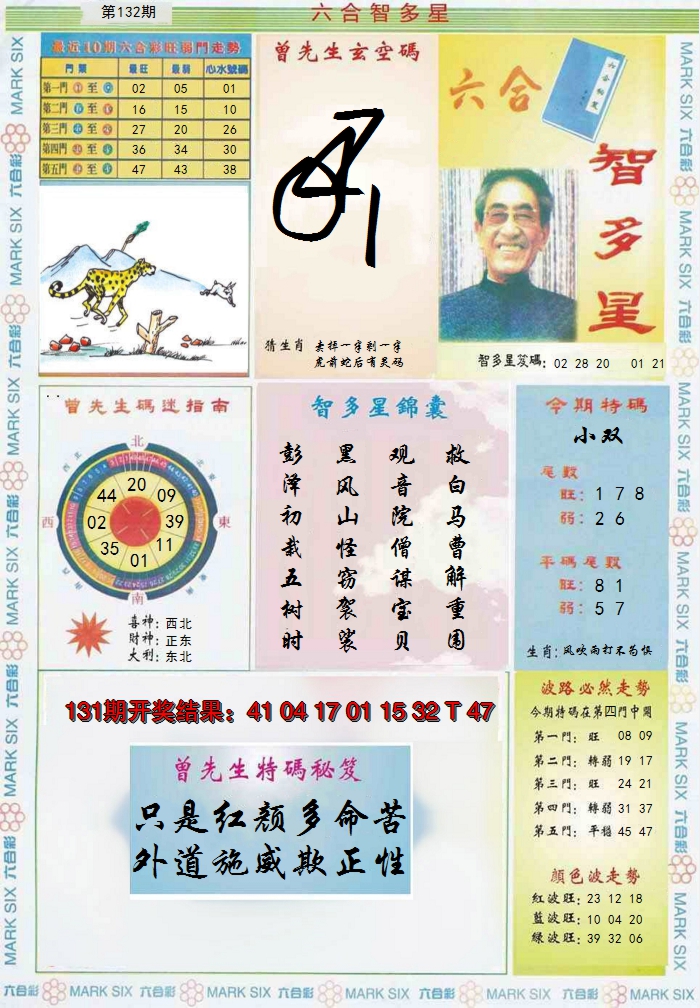 第132期
六合智多星
最近10期六合彩旺弱門走勢
門類 最旺 最弱 心水號碼
第一門 至 02 05 01
第二門 至 16 15 10
第三門 至 27 20 26
第四門 至 36 34 30
第五門 至 47 43 38
曾先生玄空碼
猜生肖 去掉一字剩一字
虎前蛇后有灵码
六合
智多星
智多星笈碼: 02 28 20 01 21
曾先生碼迷指南
北
西
東
南
44 20 09
02 39
35 01 11
喜神: 西北
财神: 正东
大利: 东北
智多星錦囊
救白马曹解重围
观音院僧谋宝贝
黑风山怪窃袈裟
彭泽初栽五树时
今期特碼
小双
尾數
旺: 1 7 8
弱: 2 6
平碼尾數
旺: 8 1
弱: 5 7
生肖: 风吹雨打不苟惧
131期开奖结果: 41 04 17 01 15 32 T 47
曾先生特碼秘笈
只是红颜多命苦
外道施威欺正性
波路必然走勢
今期特碼在第四門中開
第一門: 旺 08 09
第二門: 轉弱 19 17
第三門: 旺 24 21
第四門: 轉弱 31 37
第五門: 平穩 45 47
顔色波走勢
紅波旺: 23 12 18
藍波旺: 10 04 20
緑波旺: 39 32 06
六合彩 MARK SIX